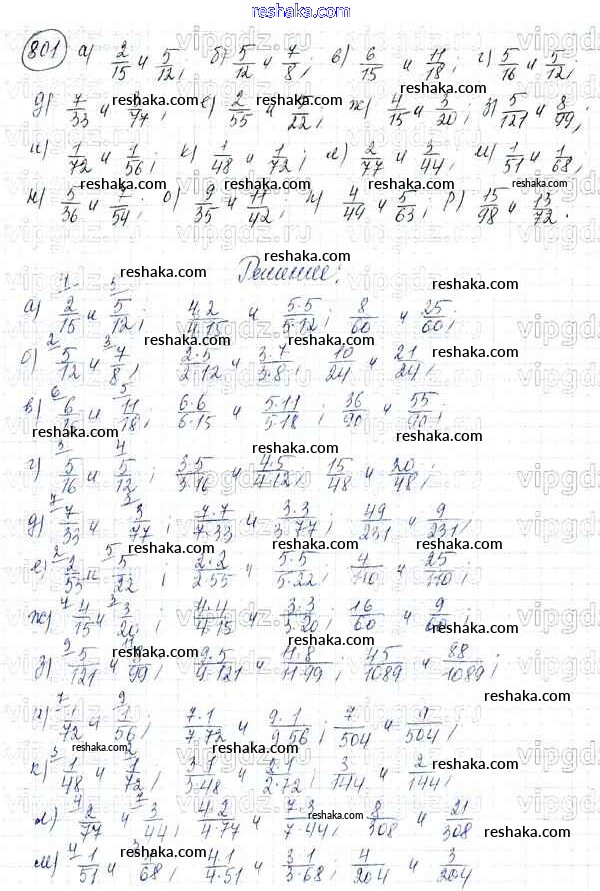 reshaka.com
801 а) 2/15 и 5/12; б) 5/12 и 7/8; в) 6/15 и 11/18; г) 5/16 и 5/12;
д) 7/33 и 3/77; е) 2/55 и 5/22; ж) 4/15 и 3/20; з) 5/121 и 8/99;
и) 1/72 и 1/56; к) 1/48 и 1/72; л) 2/77 и 3/44; м) 1/51 и 1/68;
н) 5/36 и 7/54; о) 9/35 и 11/42; п) 4/49 и 5/63; р) 15/98 и 13/72.
Решение:
а) 2/15 и 5/12; 4·2/4·15 и 5·5/5·12; 8/60 и 25/60;
б) 5/12 и 7/8; 2·5/2·12 и 3·7/3·8; 10/24 и 21/24;
в) 6/15 и 11/18; 6·6/6·15 и 5·11/5·18; 36/90 и 55/90;
г) 5/16 и 5/12; 3·5/3·16 и 4·5/4·12; 15/48 и 20/48;
д) 7/33 и 3/77; 7·7/7·33 и 3·3/3·77; 49/231 и 9/231;
е) 2/55 и 5/22; 2·2/2·55 и 5·5/5·22; 4/110 и 25/110;
ж) 4/15 и 3/20; 4·4/4·15 и 3·3/3·20; 16/60 и 9/60;
з) 5/121 и 8/99; 9·5/9·121 и 11·8/11·99; 45/1089 и 88/1089;
и) 1/72 и 1/56; 7·1/7·72 и 9·1/9·56; 7/504 и 9/504;
к) 1/48 и 1/72; 3·1/3·48 и 2·1/2·72; 3/144 и 2/144;
л) 2/77 и 3/44; 4·2/4·77 и 7·3/7·44; 8/308 и 21/308
м) 1/51 и 1/68; 4·1/4·51 и 3·1/3·68; 4/204 и 3/204